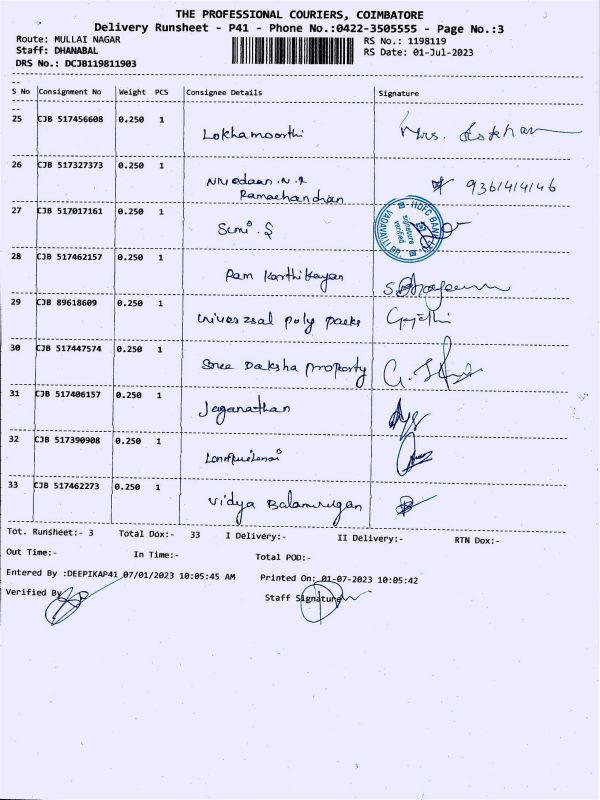 THE PROFESSIONAL COURIERS, COIMBATORE
Delivery Runsheet - P41 - Phone No.:0422-3505555 - Page No.:3
Route: MULLAI NAGAR
RS No.: 1198119
Staff: DHANABAL
RS Date: 01-Jul-2023
DRS No.: DCJB119811903
S No Consignment No Weight PCS Consignee Details Signature
25 CJB 517456608 0.250 1
Lokhamoorthi Mrs.
26 CJB 517327373 0.250 1
N.R 9361414146
Ramachandran
27 CJB 517017161 0.250 1
Simi. S HDFC BANK signature verified VADAVALLI BR
28 CJB 517462157 0.250 1
Ram Karthikayan
29 CJB 89618609 0.250 1
universal poly packs Gayathri
30 CJB 517447574 0.250 1
Sree Daksha property
31 CJB 517406157 0.250 1
Jeganathan
32 CJB 517390908 0.250 1
33 CJB 517462273 0.250 1
Vidya Balamurugan
Tot. Runsheet:- 3 Total Dox:- 33 I Delivery:- II Delivery:- RTN Dox:-
Out Time:- In Time:- Total POD:-
Entered By :DEEPIKAP41 07/01/2023 10:05:45 AM Printed On: 01-07-2023 10:05:42
Verified By Staff Signature